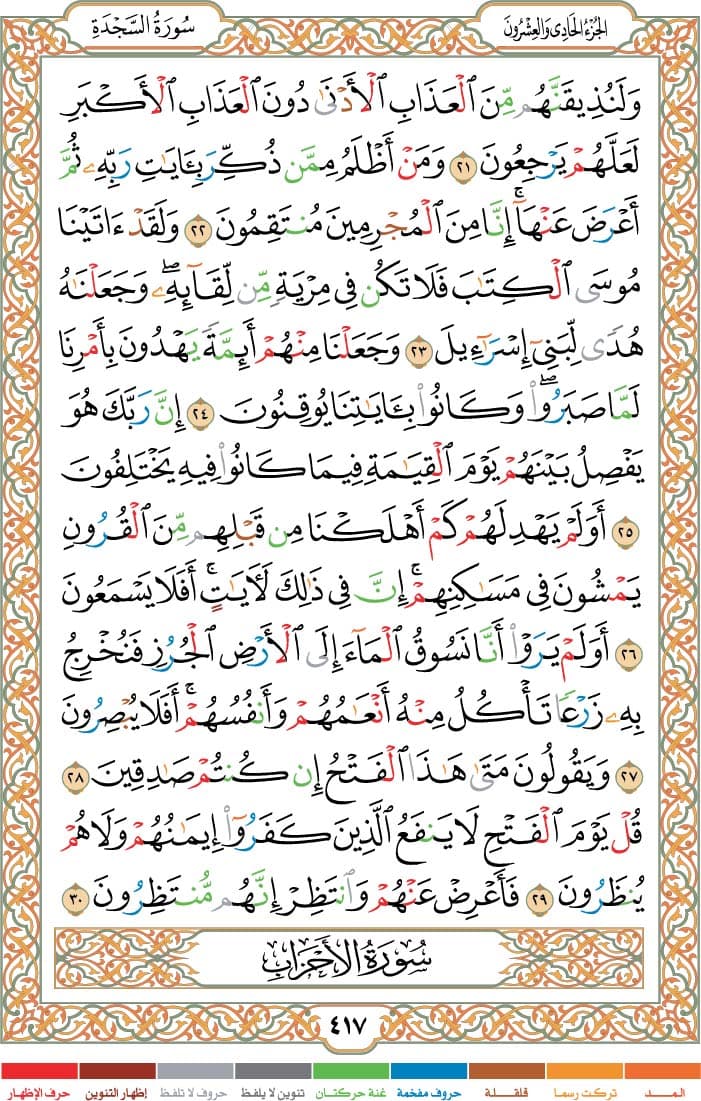 سُورَةُ السَّجْدَةِ
الجُزْءُ الحَادِى وَالعِشْرُونَ
وَلَنُذِيقَنَّهُم مِّنَ ٱلْعَذَابِ ٱلْأَدْنَىٰ دُونَ ٱلْعَذَابِ ٱلْأَكْبَرِ
لَعَلَّهُمْ يَرْجِعُونَ ٢١ وَمَنْ أَظْلَمُ مِمَّن ذُكِّرَ بِـَٔايَـٰتِ رَبِّهِۦ ثُمَّ
أَعْرَضَ عَنْهَآ ۚ إِنَّا مِنَ ٱلْمُجْرِمِينَ مُنتَقِمُونَ ٢٢ وَلَقَدْ ءَاتَيْنَا
مُوسَى ٱلْكِتَـٰبَ فَلَا تَكُن فِى مِرْيَةٍ مِّن لِّقَآئِهِۦ ۖ وَجَعَلْنَـٰهُ
هُدًى لِّبَنِىٓ إِسْرَٰٓءِيلَ ٢٣ وَجَعَلْنَا مِنْهُمْ أَئِمَّةً يَهْدُونَ بِأَمْرِنَا
لَمَّا صَبَرُوا۟ ۖ وَكَانُوا۟ بِـَٔايَـٰتِنَا يُوقِنُونَ ٢٤ إِنَّ رَبَّكَ هُوَ
يَفْصِلُ بَيْنَهُمْ يَوْمَ ٱلْقِيَـٰمَةِ فِيمَا كَانُوا۟ فِيهِ يَخْتَلِفُونَ
٢٥ أَوَلَمْ يَهْدِ لَهُمْ كَمْ أَهْلَكْنَا مِن قَبْلِهِم مِّنَ ٱلْقُرُونِ
يَمْشُونَ فِى مَسَـٰكِنِهِمْ ۚ إِنَّ فِى ذَٰلِكَ لَـَٔايَـٰتٍ ۖ أَفَلَا يَسْمَعُونَ
٢٦ أَوَلَمْ يَرَوْا۟ أَنَّا نَسُوقُ ٱلْمَآءَ إِلَى ٱلْأَرْضِ ٱلْجُرُزِ فَنُخْرِجُ
بِهِۦ زَرْعًا تَأْكُلُ مِنْهُ أَنْعَـٰمُهُمْ وَأَنفُسُهُمْ ۖ أَفَلَا يُبْصِرُونَ
٢٧ وَيَقُولُونَ مَتَىٰ هَـٰذَا ٱلْفَتْحُ إِن كُنتُمْ صَـٰدِقِينَ ٢٨
قُلْ يَوْمَ ٱلْفَتْحِ لَا يَنفَعُ ٱلَّذِينَ كَفَرُوٓا۟ إِيمَـٰنُهُمْ وَلَا هُمْ
يُنظَرُونَ ٢٩ فَأَعْرِضْ عَنْهُمْ وَٱنتَظِرْ إِنَّهُم مُّنتَظِرُونَ ٣٠
سُورَةُ الأَحْزَابِ
٤١٧
المــد
تركت رسما
قلقلة
حروف مفخمة
غنة حركتان
تنوين لا يلفظ
حروف لا تلفظ
إظهار التنوين
حرف الإظهار